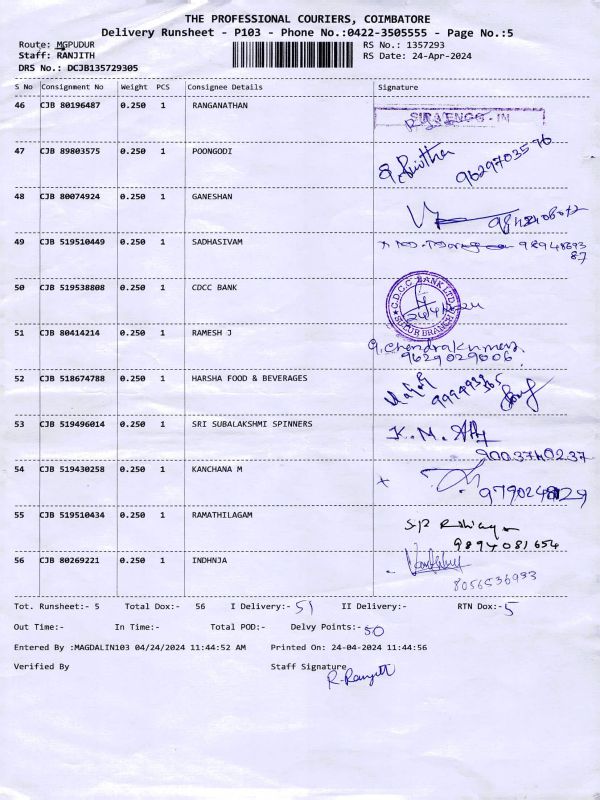 THE PROFESSIONAL COURIERS, COIMBATORE
Delivery Runsheet - P103 - Phone No.:0422-3505555 - Page No.:5
Route: MGPUDUR
RS No.: 1357293
Staff: RANJITH
RS Date: 24-Apr-2024
DRS No.: DCJB135729305
S No Consignment No Weight PCS Consignee Details Signature
46 CJB 80196487 0.250 1 RANGANATHAN
47 CJB 89803575 0.250 1 POONGODI
9629703576
48 CJB 80074924 0.250 1 GANESHAN
49 CJB 519510449 0.250 1 SADHASIVAM
50 CJB 519538808 0.250 1 CDCC BANK
C.D.C.C. BANK LTD.
BRANCH
51 CJB 80414214 0.250 1 RAMESH J
G. Chendrakumar
9629029006.
52 CJB 518674788 0.250 1 HARSHA FOOD & BEVERAGES
53 CJB 519496014 0.250 1 SRI SUBALAKSHMI SPINNERS
K. M.
9003740237
54 CJB 519430258 0.250 1 KANCHANA M
55 CJB 519510434 0.250 1 RAMATHILAGAM
9894081654
56 CJB 80269221 0.250 1 INDHNJA
8056536933
Tot. Runsheet:- 5 Total Dox:- 56 I Delivery:- 51 II Delivery:- RTN Dox:- 5
Out Time:- In Time:- Total POD:- Delvy Points:- 50
Entered By :MAGDALIN103 04/24/2024 11:44:52 AM Printed On: 24-04-2024 11:44:56
Verified By Staff Signature
R. Ranjith